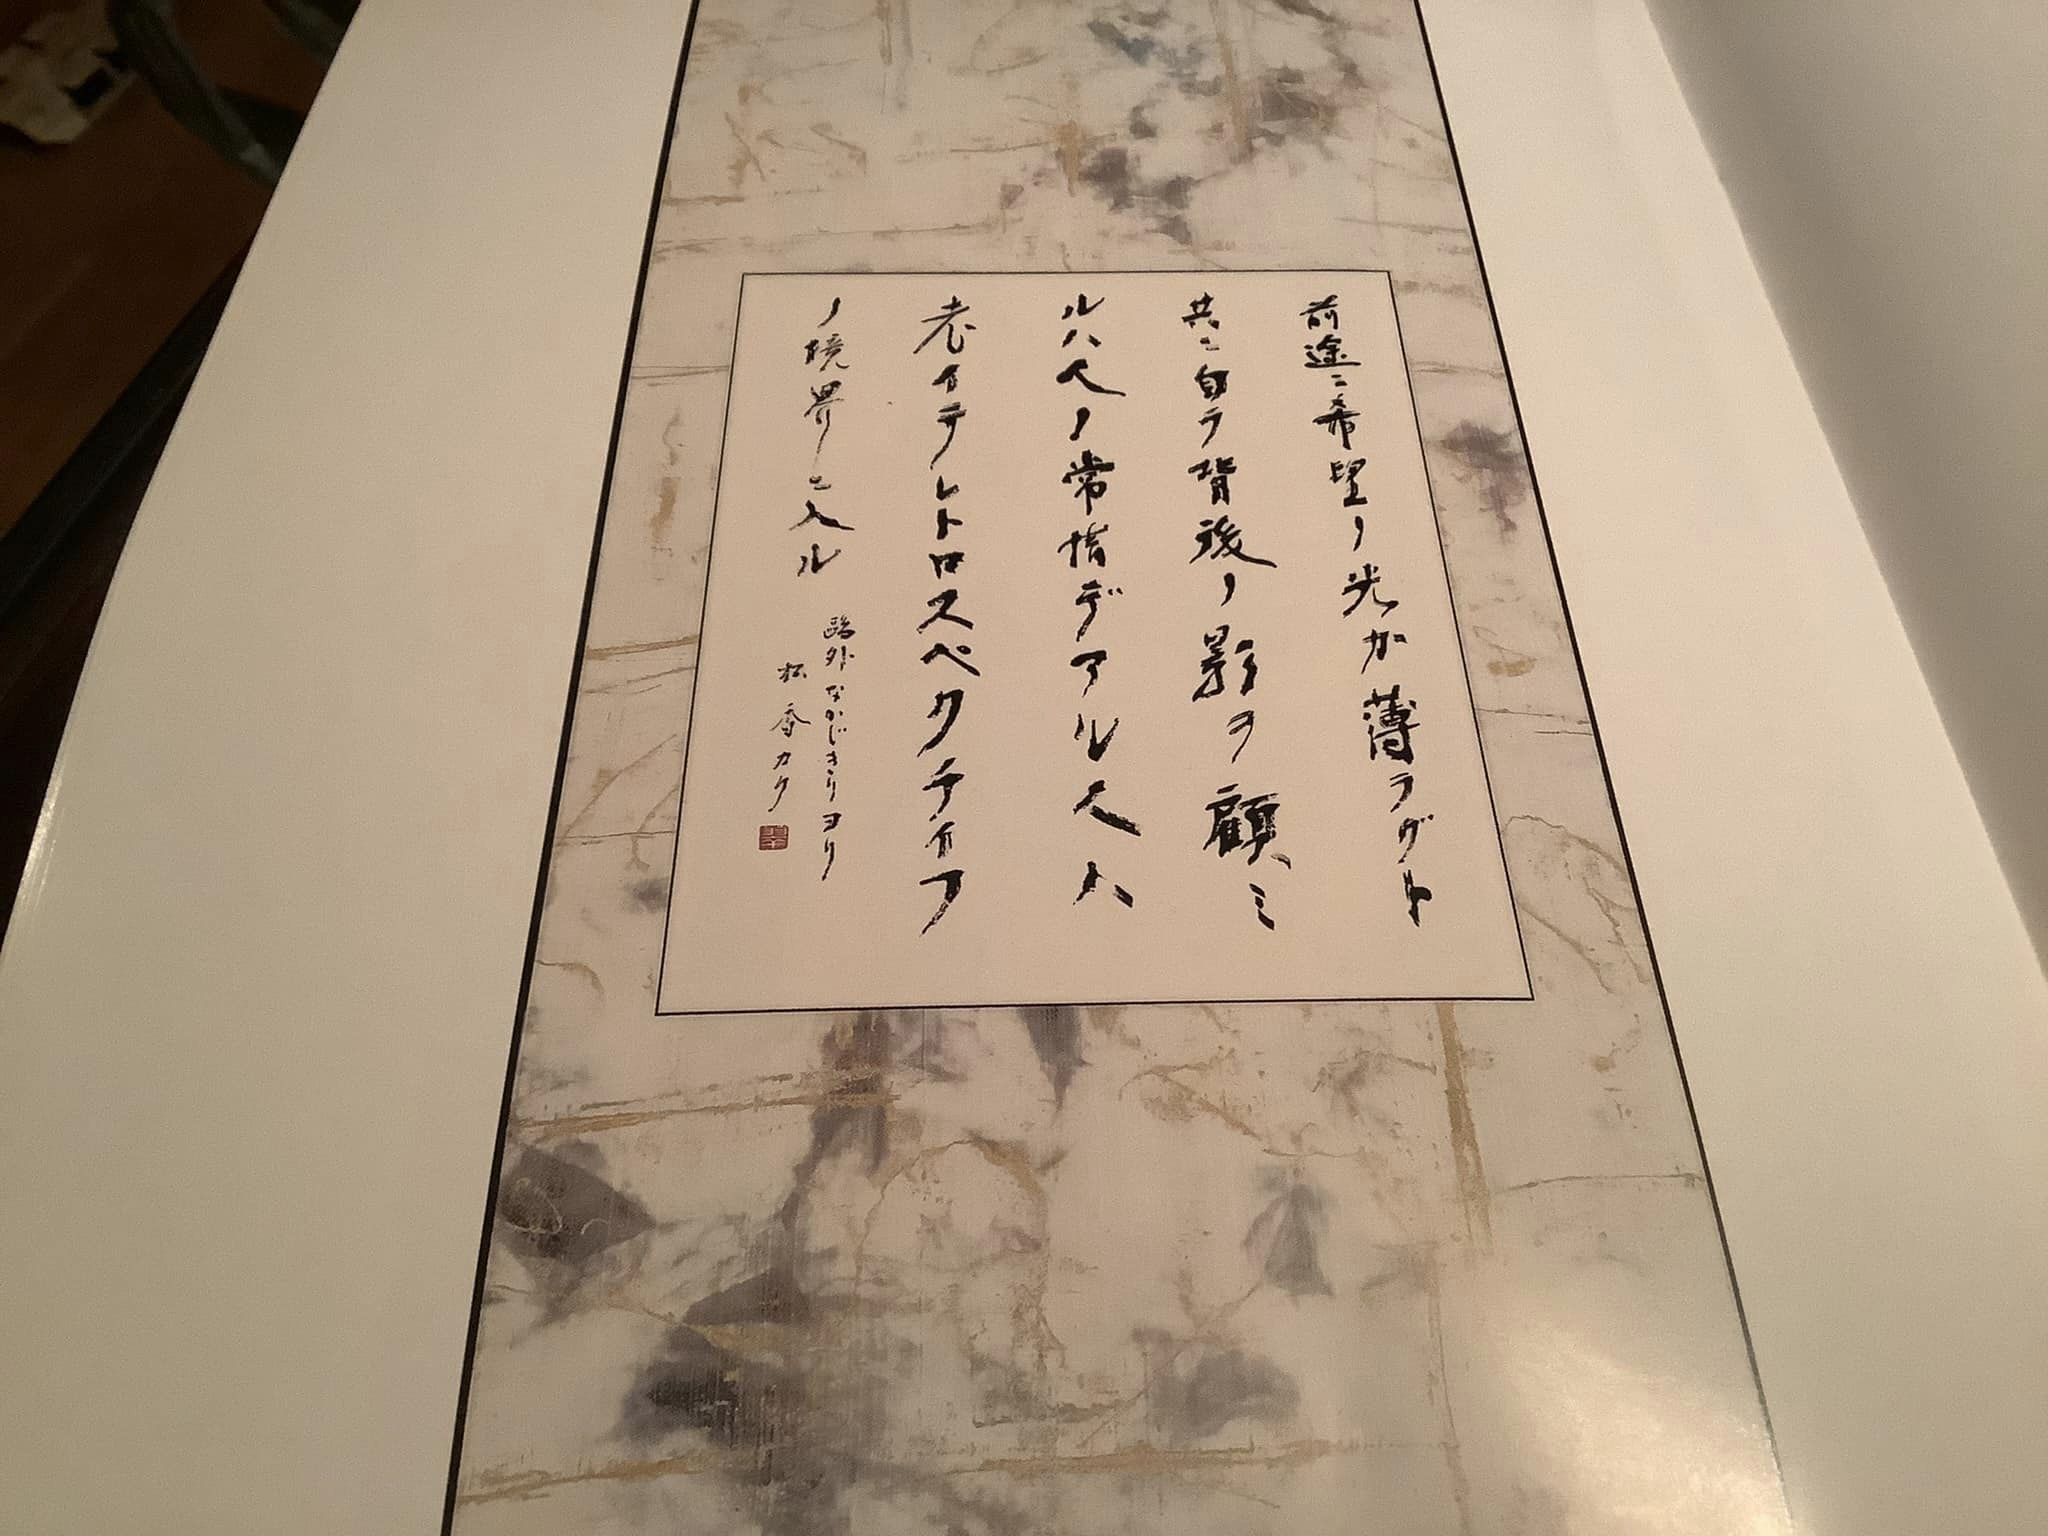 前途ニ希望ノ光ガ薄ラグト
共ニ自ラ背後ノ影ヲ顧ミ
ルハ人ノ常情デアル人ハ
老イテレトロスペクチイフ
ノ境界ニ入ル
鷗外なかじきりヨリ
松香カク